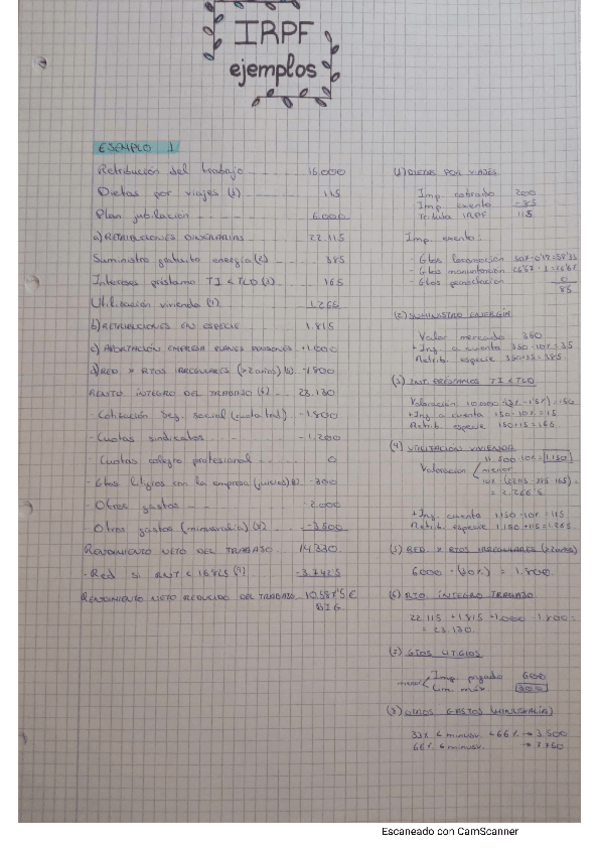 IRPF
ejemplos
EJEMPLO 1
Retribución del trabajo 15.000
Dietas por viajes (1) 115
Plan jubilación 6.000
a) RETRIBUCIONES DINERARIAS 22.115
Suministro gratuito energía (2) 385
Intereses préstamo TI < TLD (3) 165
Utilización vivienda (4) 1.265
b) RETRIBUCIONES EN ESPECIE 1.815
c) APORTACIÓN EMPRESA PLANES PENSIONES +1.000
d) RED X RTOS IRREGULARES (>2 años) (5) -1.800
RENTO. ÍNTEGRO DEL TRABAJO (6) 23.130
- Cotización Seg. social (cuota trab) -1.800
- Cuotas sindicatos -1.200
- Cuotas colegio profesional 0
- Gtos litigios con la empresa -300
- Otros gastos -2.000
- Otros gastos (minusvalía) (8) -3.500
RENDIMIENTO NETO DEL TRABAJO 14.330
- Red si RNT < 16825 (9) -3.742'5
RENDIMIENTO NETO REDUCIDO DEL TRABAJO 10.587'5 €
BIG
(1) DIETAS POR VIAJES
Imp cobrado 200
Imp exento -85
Tributa IRPF 115
Imp. exento:
- Gtos locomoción
- Gtos manutención
- Gtos pernoctación 0
85
(2) SUMINISTRO ENERGÍA
Valor mercado 350
+ Ing. a cuenta 350 · 10% = 35
Retrib. especie 350+35 = 385
(3) INT. PRÉSTAMOS TI < TLD
Valoración 10.000
+ Ing. a cuenta 150 · 10% = 15
Retrib. especie 150+15 = 165
(4) UTILIZACIÓN VIVIENDA
11.500 · 10% = 1.150
Valoración menor
= 2.266'5
+ Ing. cuenta 1.150 · 10% = 115
Retrib. especie 1.150 + 115 = 1.265
(5) RED. X RTOS IRREGULARES (>2 años)
6000 · (30%) = 1.800
(6) RTO ÍNTEGRO TRABAJO
22.115 + 1.815 + 1.000 - 1.800 =
= 23.130
(7) GTOS LITIGIOS
menor Imp pagado 600
Lim. máx. 300
(8) OTROS GASTOS (MINUSVALÍA)
33% ≤ minusv. < 66% → 3.500
65% ≤ minusv. → 7.750
Escaneado con CamScanner